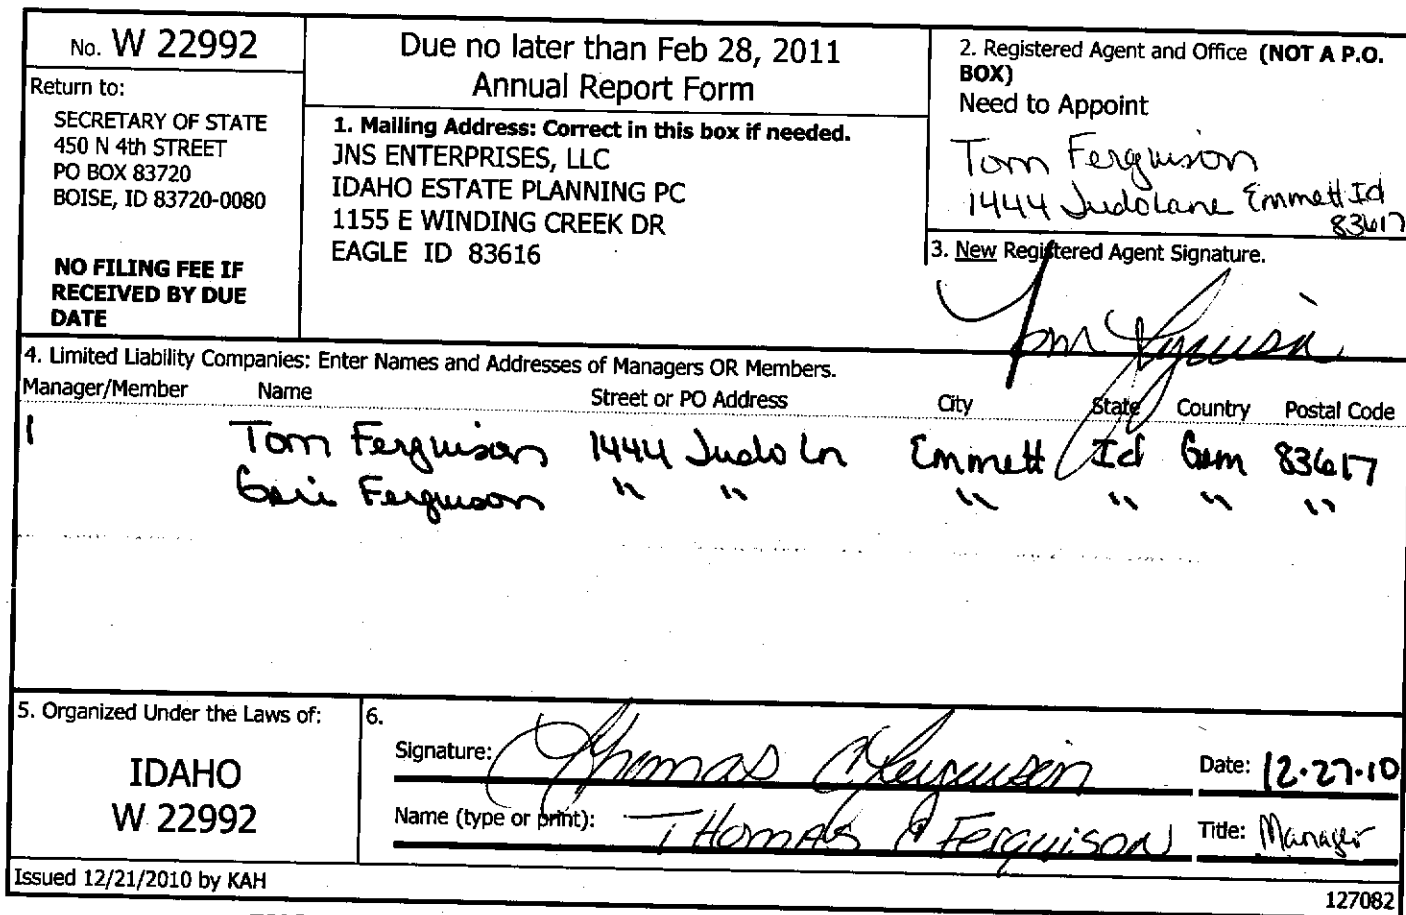 No. W 22992
Return to:
SECRETARY OF STATE
450 N 4th STREET
PO BOX 83720
BOISE, ID 83720-0080
NO FILING FEE IF
RECEIVED BY DUE
DATE
Due no later than Feb 28, 2011
Annual Report Form
1. Mailing Address: Correct in this box if needed.
JNS ENTERPRISES, LLC
IDAHO ESTATE PLANNING PC
1155 E WINDING CREEK DR
EAGLE ID 83616
2. Registered Agent and Office (NOT A P.O.
BOX)
Need to Appoint
Tom Ferguison
1444 Judo Lane Emmett Id
83617
3. New Registered Agent Signature.
Tom
4. Limited Liability Companies: Enter Names and Addresses of Managers OR Members.
Manager/Member Name Street or PO Address City State Country Postal Code
1 Tom Ferguison 1444 Judo Ln Emmett Id Gem 83617
Ferguison " " " " " "
5. Organized Under the Laws of:
IDAHO
W 22992
6.
Signature: Thomas Ferguison Date: 12.27.10
Name (type or print): Thomas Ferguison Title: Manager
Issued 12/21/2010 by KAH
127082